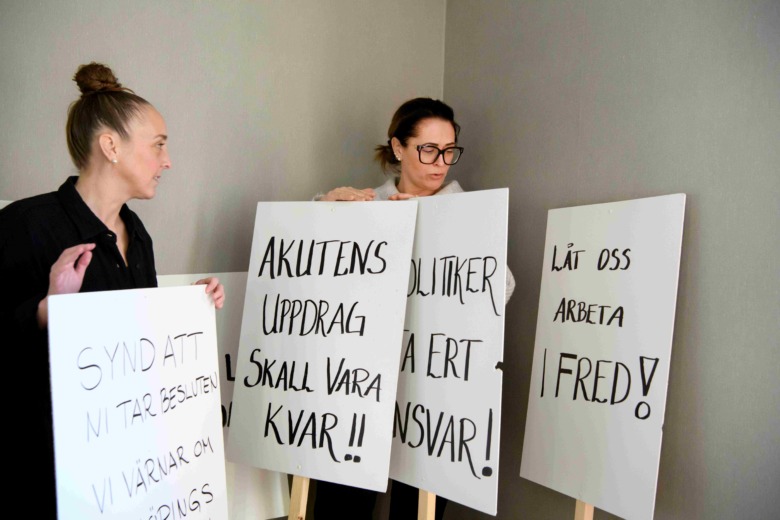 SYND ATT
NI TAR BESLUTEN
VI VÄRNAR OM
AKUTENS
UPPDRAG
SKALL VARA
KVAR!!
OLITIKER
A ERT
NSVAR!
LÅT OSS
ARBETA
I FRED!